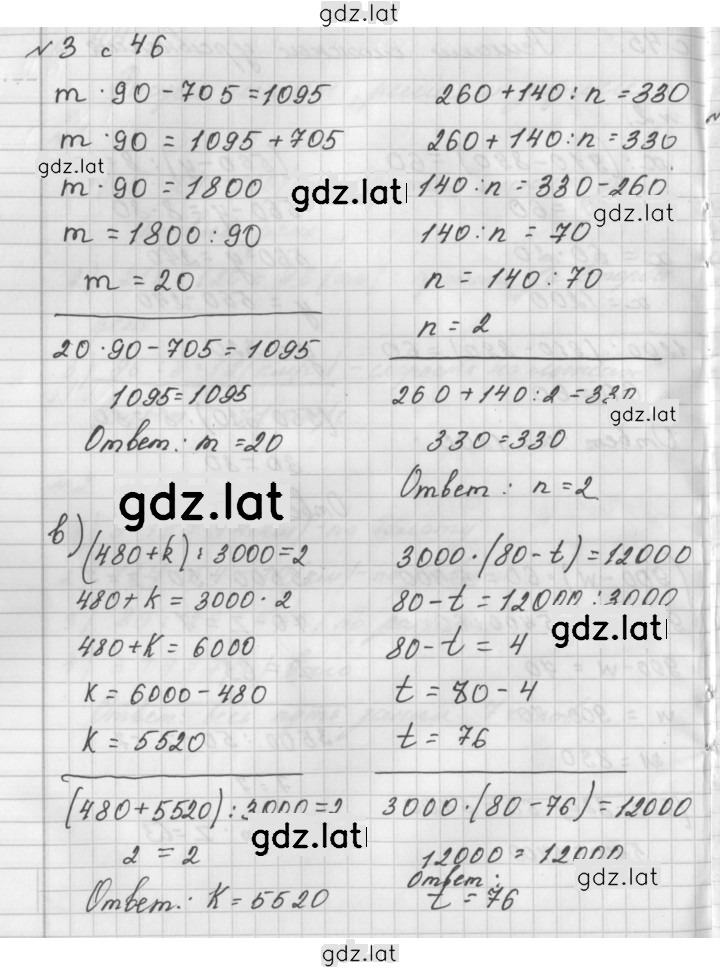 gdz.lat
№ 3 с 46
m · 90 - 705 = 1095
m · 90 = 1095 + 705
gdz.lat
m · 90 = 1800
gdz.lat
m = 1800 : 90
m = 20
20 · 90 - 705 = 1095
1095 = 1095
Ответ: m = 20
260 + 140 : n = 330
260 + 140 : n = 330
140 : n = 330 - 260
gdz.lat
140 : n = 70
n = 140 : 70
n = 2
260 + 140 : 2 = 330
gdz.lat
330 = 330
Ответ: n = 2
gdz.lat
в) (480 + k) : 3000 = 2
480 + k = 3000 · 2
480 + k = 6000
k = 6000 - 480
k = 5520
(480 + 5520) : 3000 = 2
gdz.lat
2 = 2
Ответ: k = 5520
3000 · (80 - t) = 12000
80 - t = 12000 : 3000
gdz.lat
80 - t = 4
t = 80 - 4
t = 76
3000 · (80 - 76) = 12000
12000 = 12000
gdz.lat
Ответ:
t = 76
gdz.lat